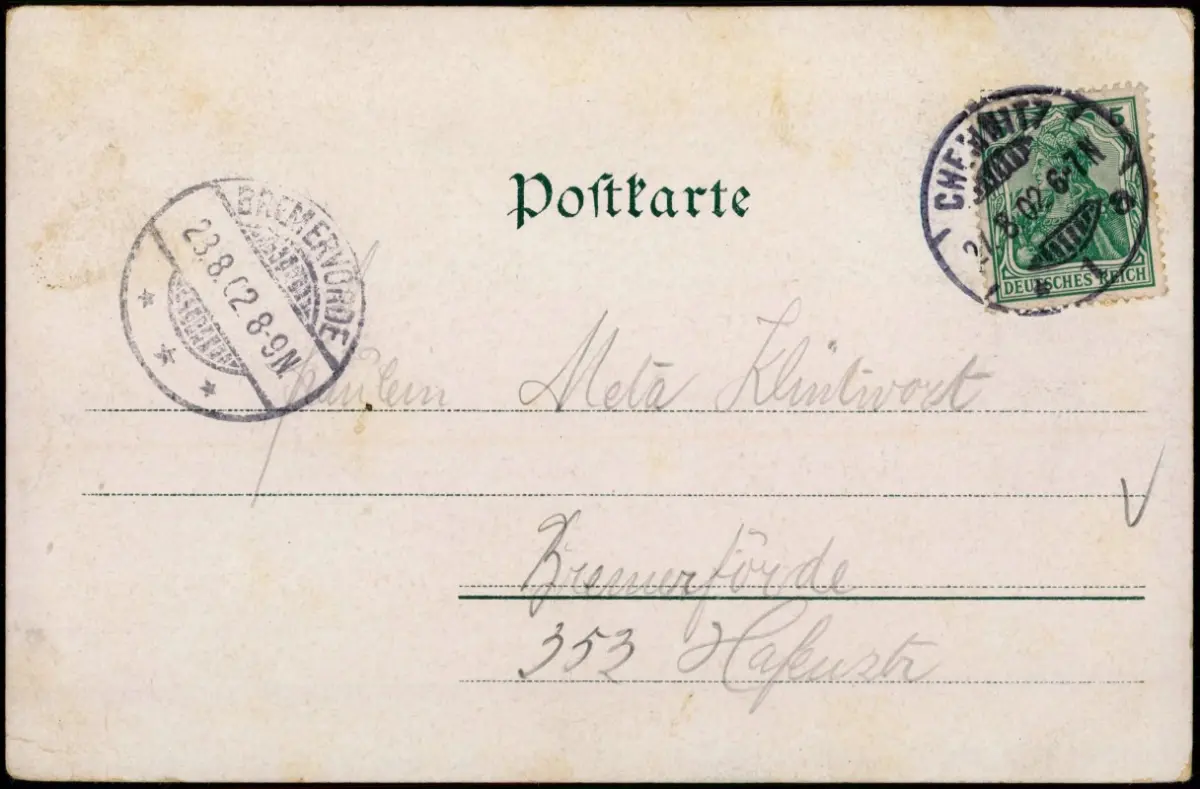 Postkarte
CHEMNITZ
21.8.02 6-7N
1 a
5
DEUTSCHES REICH
BREMERVÖRDE
23.8.02 8-9N
Fräulein Meta Klintwort
Bremerförde
353 Hafenstr